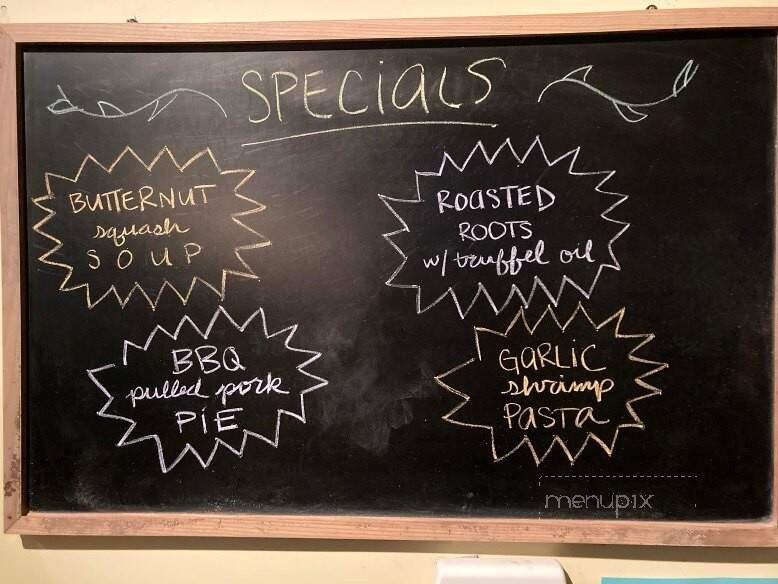 SPECiaLS
BUTTERNUT
squash
SOUP
ROaSTED
ROOTS
w/ truffel oil
BBQ
pulled pork
PiE
GaRLiC
shrimp
PaSTa
menupix